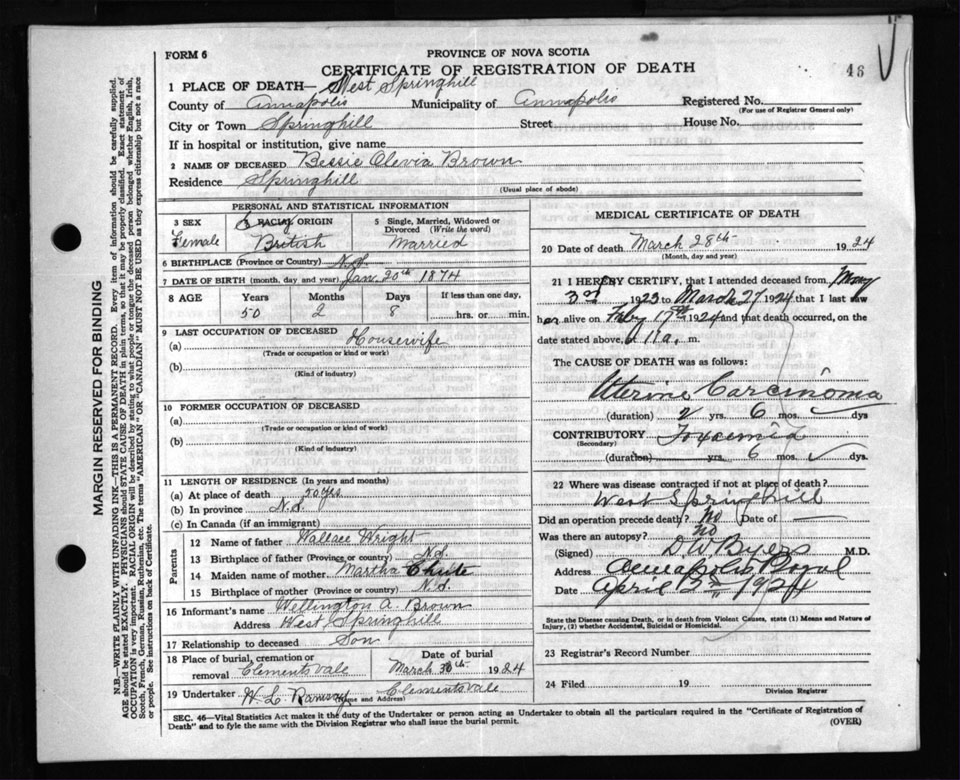 FORM 6
PROVINCE OF NOVA SCOTIA
CERTIFICATE OF REGISTRATION OF DEATH
46
1 PLACE OF DEATH— West Springhill
County of Annapolis Municipality of Annapolis Registered No.
(For use of Registrar General only)
City or Town Springhill Street House No.
If in hospital or institution, give name
2 NAME OF DECEASED Bessie Olevia Brown
Residence Springhill
(Usual place of abode)
PERSONAL AND STATISTICAL INFORMATION
3 SEX RACIAL ORIGIN 5 Single, Married, Widowed or Divorced (Write the word)
Female British Married
6 BIRTHPLACE (Province or Country) N.S.
7 DATE OF BIRTH (month, day and year) Jan. 20th 1874
8 AGE Years Months Days If less than one day,
50 2 8 hrs. or min.
9 LAST OCCUPATION OF DECEASED
(a) Housewife
(Trade or occupation or kind or work)
(b)
(Kind of industry)
10 FORMER OCCUPATION OF DECEASED
(a)
(Trade or occupation or kind of work)
(b)
(Kind of industry)
11 LENGTH OF RESIDENCE (In years and months)
(a) At place of death 20 yrs.
(b) In province N.S.
(c) In Canada (if an immigrant)
Parents
12 Name of father Wallace Wright
13 Birthplace of father (Province or country) N.S.
14 Maiden name of mother Martha Chute
15 Birthplace of mother (Province or country) N.S.
16 Informant's name Wellington A. Brown
Address West Springhill
17 Relationship to deceased Son
18 Place of burial, cremation or removal Clementsvale
Date of burial
March 30th 1924
19 Undertaker W. L. Clementsvale
(Name and Address)
MEDICAL CERTIFICATE OF DEATH
20 Date of death March 28th 1924
(Month, day and year)
21 I HEREBY CERTIFY, that I attended deceased from May
3rd 1923 to March 27 1924 that I last saw
her alive on 17th 1924 and that death occurred, on
the date stated above, 11 a. m.
The CAUSE OF DEATH was as follows:
Uterine Carcinoma
(duration) 2 yrs. 6 mos. dys
CONTRIBUTORY Toxaemia
(Secondary)
(duration) yrs. 6 mos. dys.
22 Where was disease contracted if not at place of death?
West Springhill
Did an operation precede death? No Date of —
Was there an autopsy? No
(Signed) D W Byers M.D.
Address Annapolis Royal
Date April 2nd 1924
State the Disease causing Death, or in death from Violent Causes, state (1) Means and Nature of
Injury, (2) whether Accidental, Suicidal or Homicidal.
23 Registrar's Record Number
24 Filed 19
Division Registrar
SEC. 46—Vital Statistics Act makes it the duty of the Undertaker or person acting as Undertaker to obtain all the particulars required in the "Certificate of Registration of
Death" and to fyle the same with the Division Registrar who shall issue the burial permit. (OVER)
MARGIN RESERVED FOR BINDING
N.B.—WRITE PLAINLY WITH UNFADING INK—THIS IS A PERMANENT RECORD. Every item of information should be carefully supplied.
AGE should be stated EXACTLY. PHYSICIANS should STATE CAUSE OF DEATH in plain terms, so that it may be properly classified. Exact statement of
OCCUPATION is very important. RACIAL ORIGIN will be described by stating to what people or tongue the deceased person belonged whether English, Irish,
Scotch, French, German, Russian, Ruthenian, etc. The terms "AMERICAN" OR "CANADIAN" MUST NOT BE USED as they express citizenship but not a race
or people. See instructions on back of Certificate.